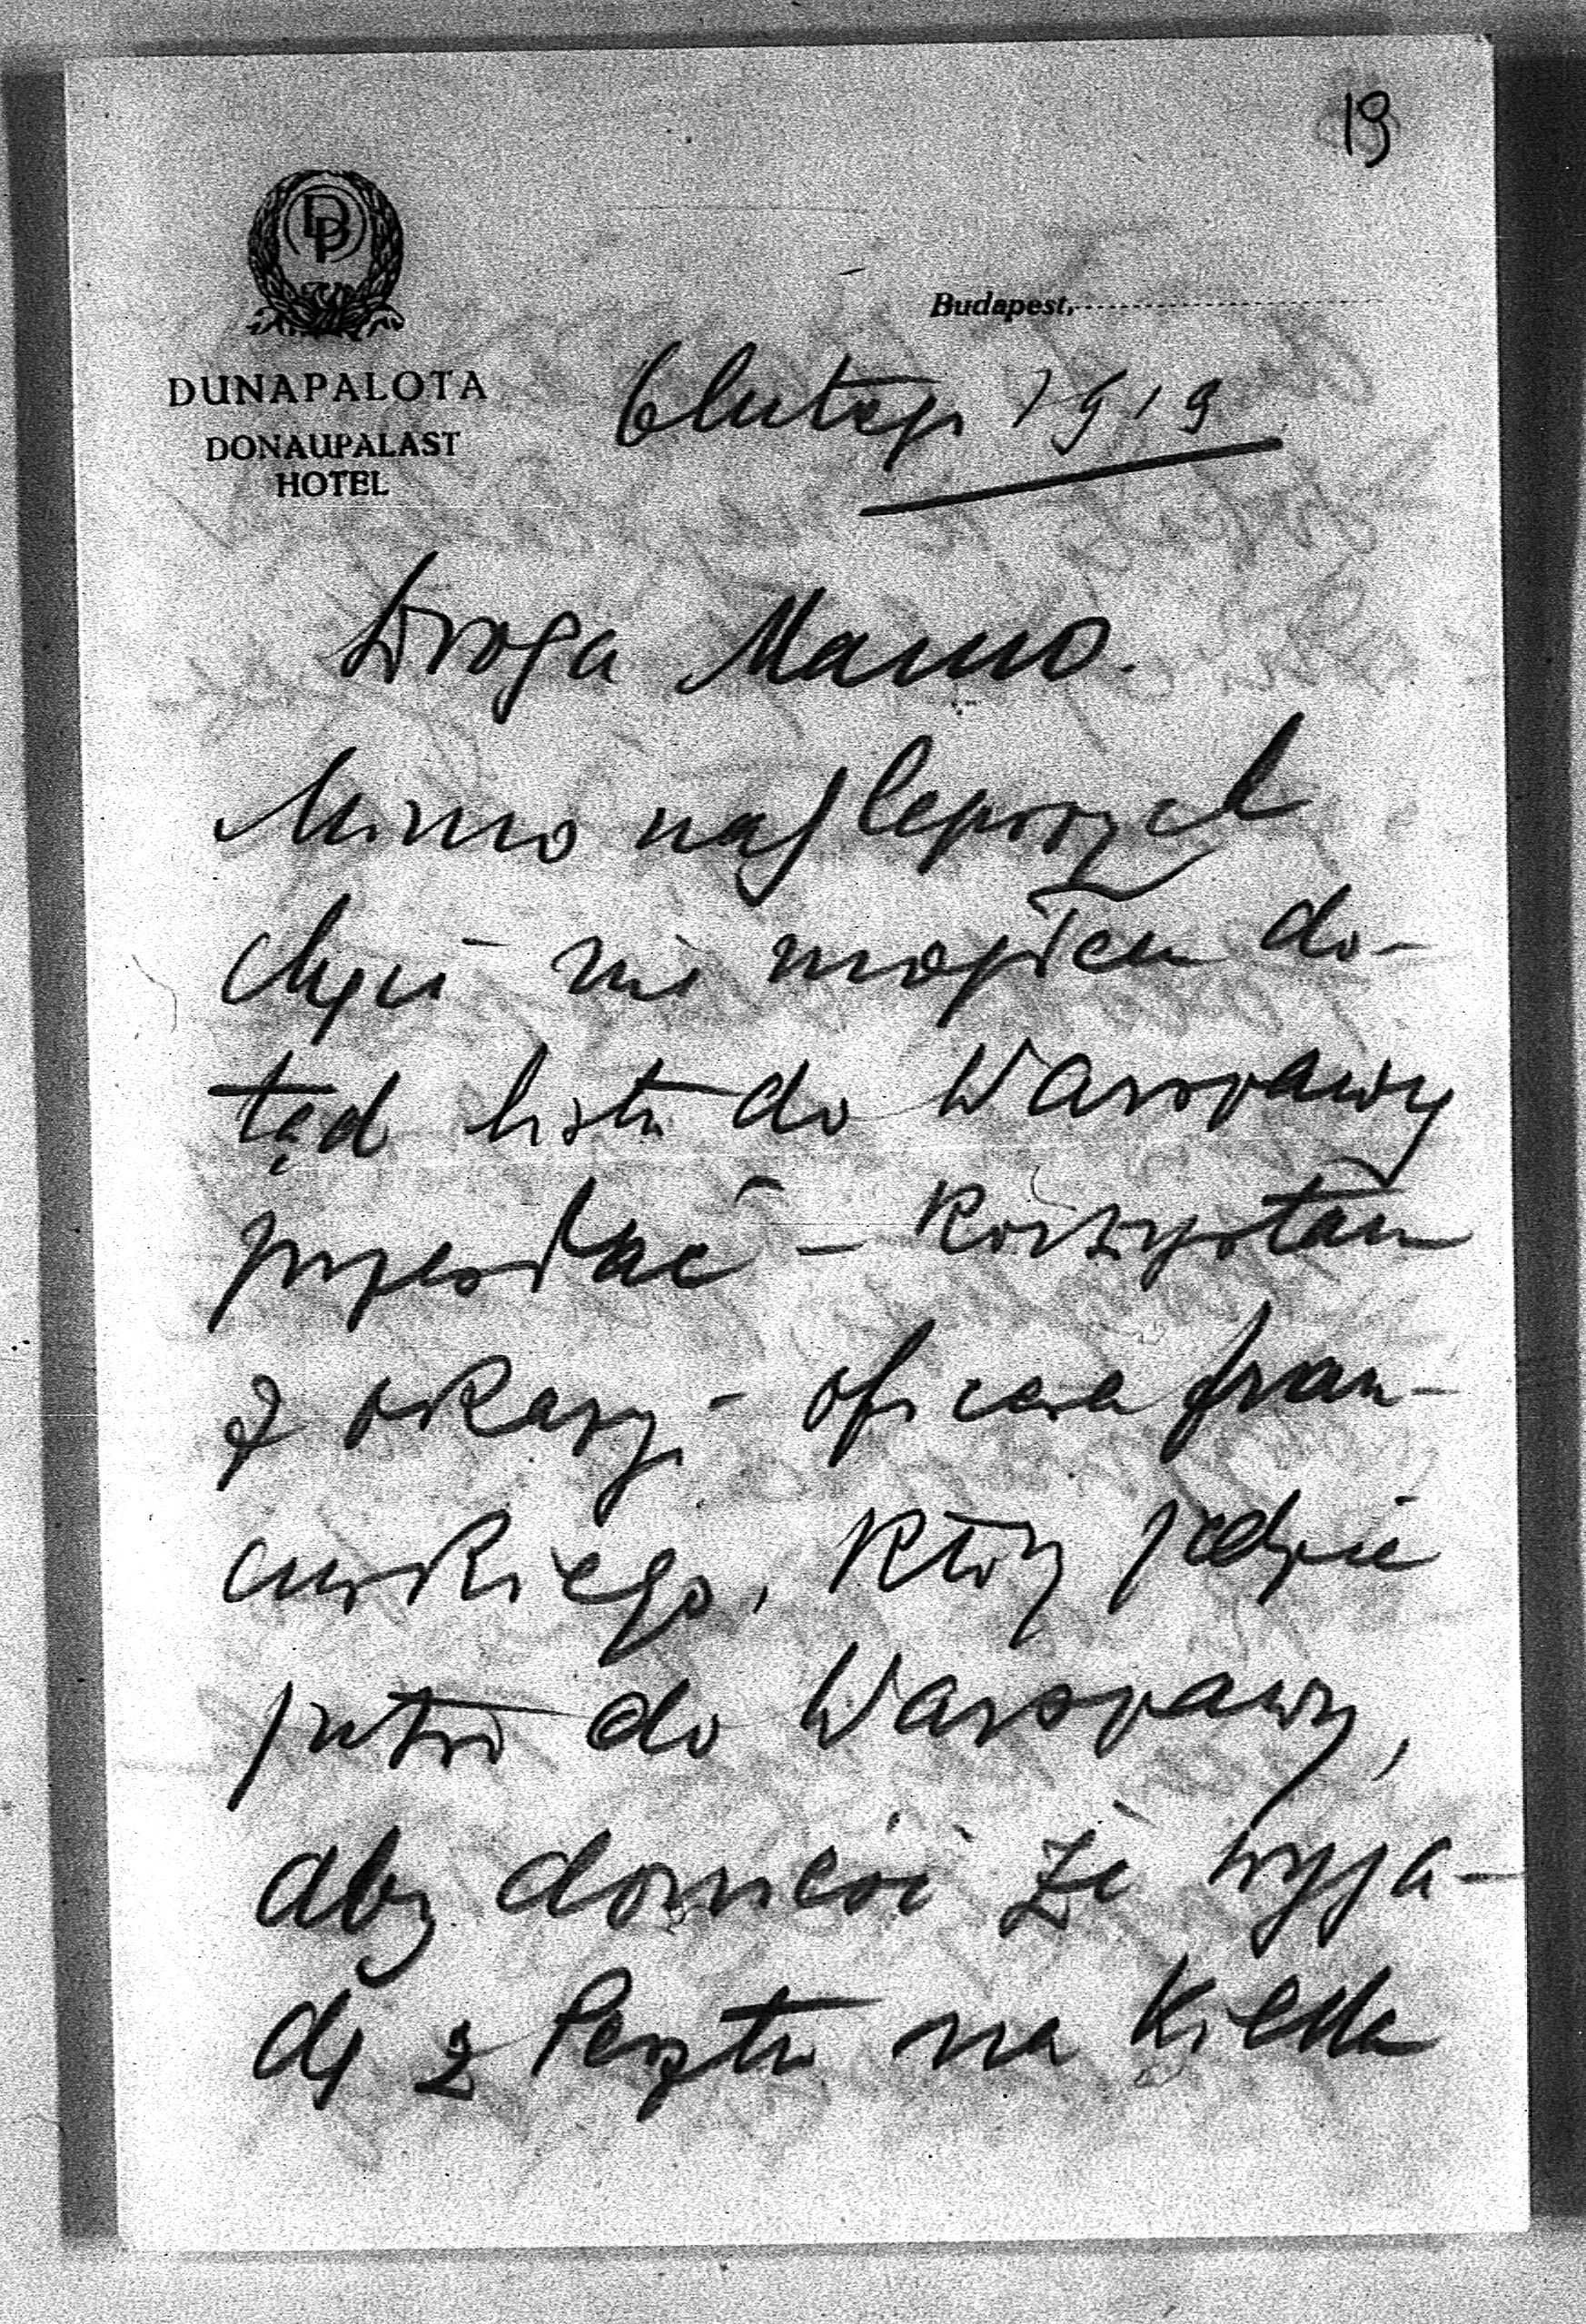 19
DP
Budapest,
DUNAPALOTA
DONAUPALAST
HOTEL
6 lutego 1919
Droga Mamo.
Mimo najlepszych
chęci nie mogłem do-
tąd listu do Warszawy
przesłać – korzystam
z okazyi – oficera fran-
cuskiego, który jedzie
jutro do Warszawy,
aby donieść że wyja-
dę z Pesztu na kilka